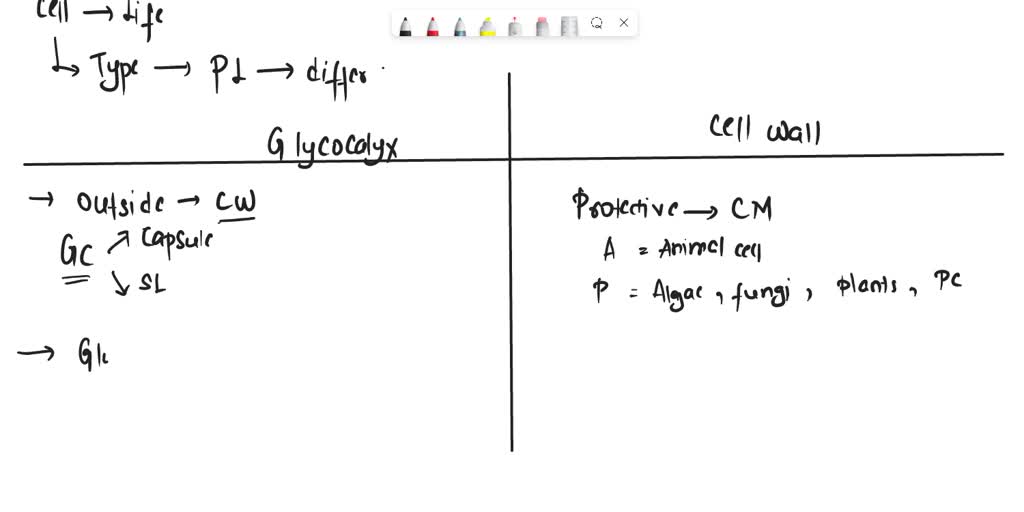 Cell → life
↳ Type → PL → differ
Glycocalyx
→ Outside → CW
GC ↗ Capsule
↘ SL
→ Gl
Cell wall
Protective → CM
A = Animal cell
P = Algae, fungi, plants, PC